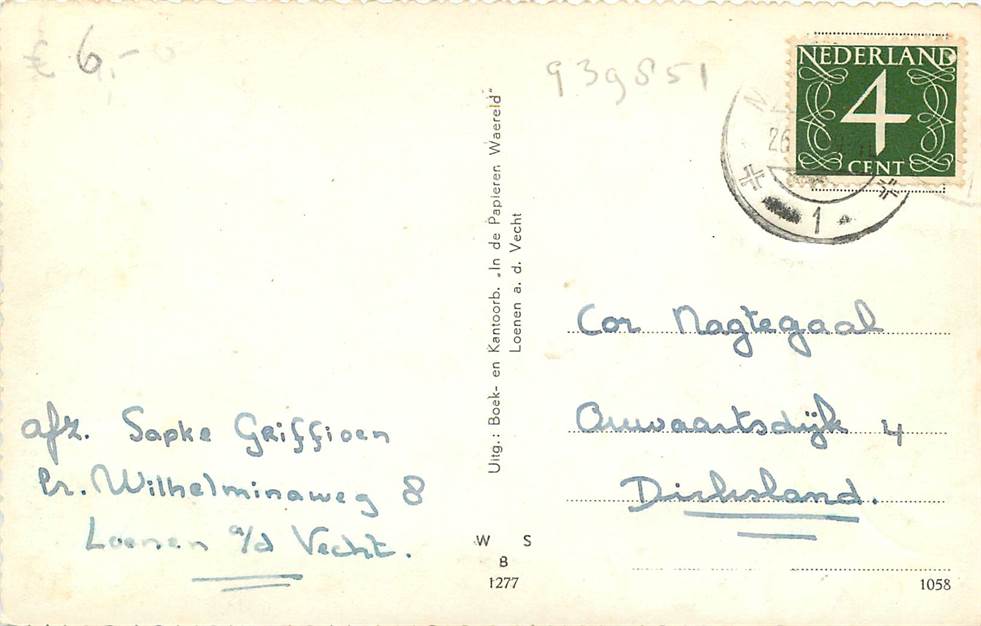 € 6,-
939851
NEDERLAND
4
CENT
26
1
Uitg.: Boek- en Kantoorb. „In de Papieren Waereld"
Loenen a. d. Vecht
Cor Nagtegaal
Onwaartsdijk 4
Dirksland.
afz. Sapke Griffioen
Pr. Wilhelminaweg 8
Loenen a/d Vecht.
W S
B
1277
1058